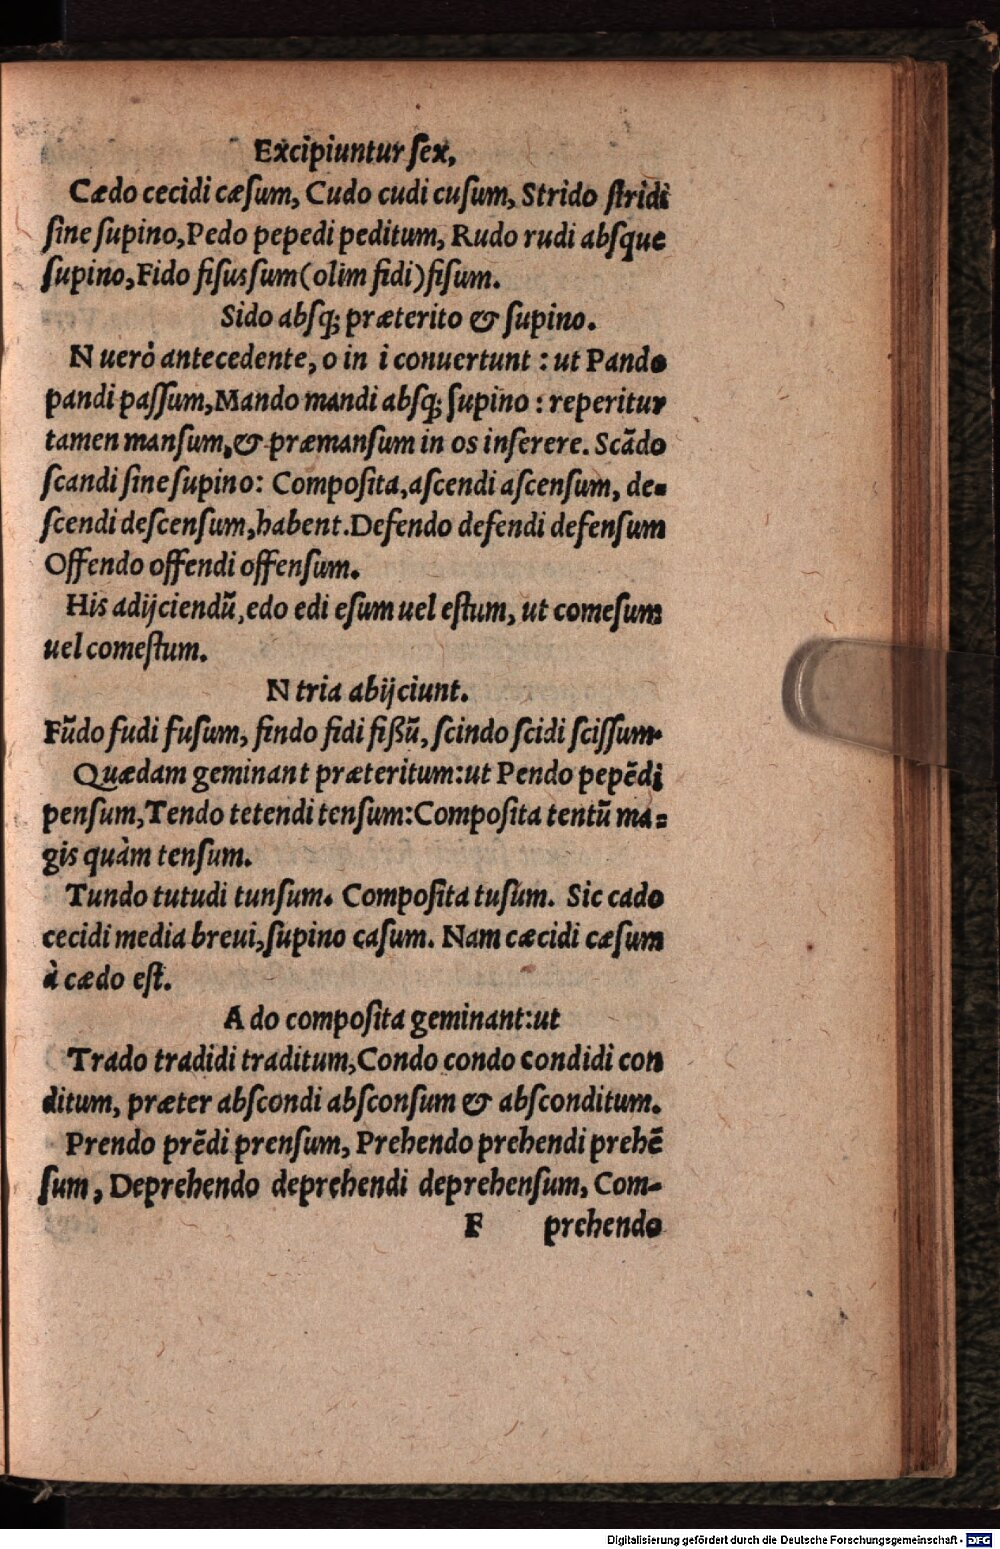 Excipiuntur ſex,
Cædo cecidi cæſum, Cudo cudi cuſum, Strido ſtridi
ſine ſupino, Pedo pepedi peditum, Rudo rudi abſque
ſupino, Fido fiſus ſum (olim fidi) fiſum.
Sido abſq; præterito & ſupino.
N uerò antecedente, o in i conuertunt : ut Pando
pandi paſſum, Mando mandi abſq; ſupino : reperitur
tamen manſum, & præmanſum in os inſerere. Scãdo
ſcandi ſine ſupino: Compoſita, aſcendi aſcenſum, de-
ſcendi deſcenſum, habent. Defendo defendi defenſum
Offendo offendi offenſum.
His adijciendũ, edo edi eſum uel eſtum, ut comeſum
uel comeſtum.
N tria abijciunt.
Fũdo fudi fuſum, findo fidi fißũ, ſcindo ſcidi ſciſſum.
Quædam geminant præteritum: ut Pendo pepẽdi
penſum, Tendo tetendi tenſum: Compoſita tentũ ma-
gis quàm tenſum.
Tundo tutudi tunſum. Compoſita tuſum. Sic cado
cecidi media breui, ſupino caſum. Nam cæcidi cæſum
à cædo eſt.
A do compoſita geminant: ut
Trado tradidi traditum, Condo condo condidi con
ditum, præter abſcondi abſconſum & abſconditum.
Prendo prẽdi prenſum, Prehendo prehendi prehẽ
ſum, Deprehendo deprehendi deprehenſum, Com-
F prehendo
Digitalisierung gefördert durch die Deutsche Forschungsgemeinschaft - DFG